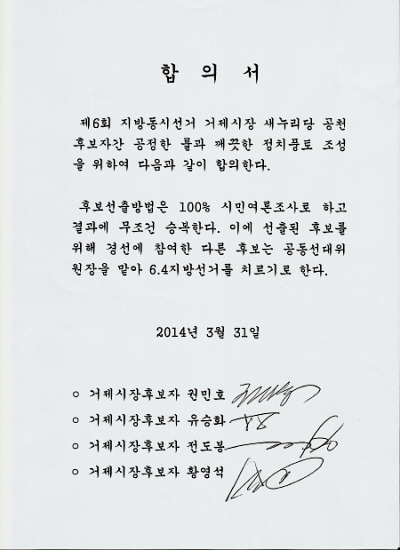 합 의 서
제6회 지방동시선거 거제시장 새누리당 공천
후보자간 공정한 룰과 깨끗한 정치풍토 조성
을 위하여 다음과 같이 합의한다.
후보선출방법은 100% 시민여론조사로 하고
결과에 무조건 승복한다. 이에 선출된 후보를
위해 경선에 참여한 다른 후보는 공동선대위
원장을 맡아 6.4지방선거를 치르기로 한다.
2014년 3월 31일
○ 거제시장후보자 권민호
○ 거제시장후보자 유승화
○ 거제시장후보자 전도봉
○ 거제시장후보자 황영석